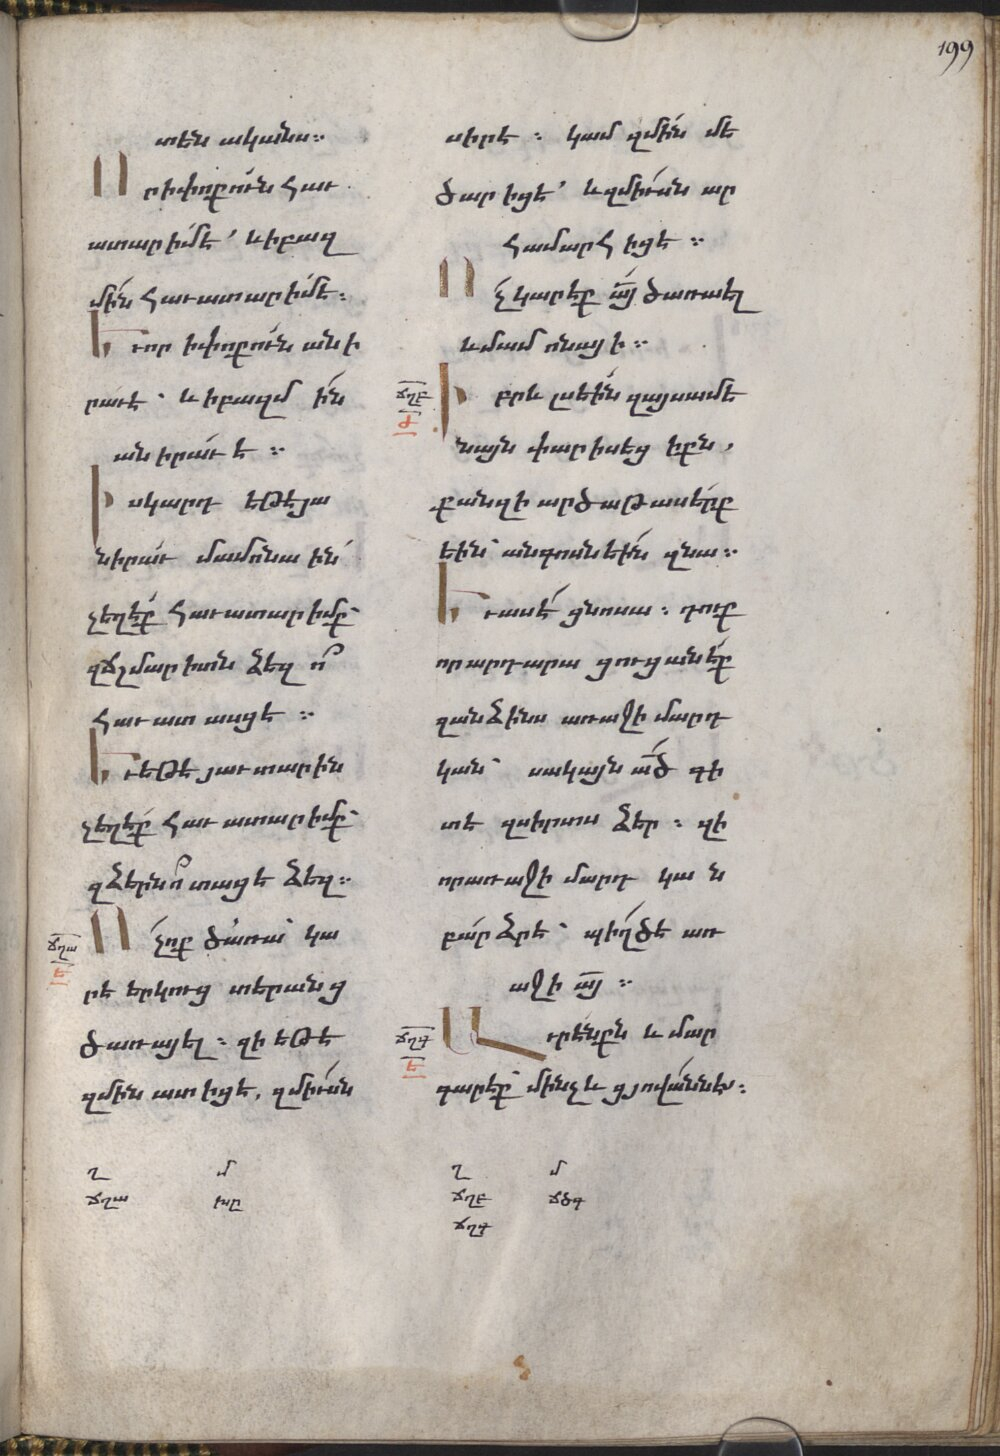 199
տէն ականս։
Որ ի փոքուն հաւ
ատարիմ է՝ և ի բազ
մին հաւատարիմ է։
Եւ որ ի փոքուն անի
րաւ է՝ և ի բազմին
անիրաւ է։
Իսկ արդ եթէ յա
նիրաւ մամոնային՝
չեղէք հաւատարիմք՝
զճշմարիտն ձեզ ո՞
հաւատասցէ։
Եւ եթէ յաւտարին
չեղէք հաւատարիմք՝
զձերն ո՞ տացէ ձեզ։
ճղա
ե
Ոչ ոք ծառա՝ կա
րէ երկուց տերանց
ծառայել։ զի եթէ
զմին ատիցէ, զմիւսն
սիրէ։ կամ զմին մե
ծարիցէ՝ և զմիւսն ար
համարհիցէ։
Ոչ կարէք ա՟յ ծառաել
և մամոնայի։
ճղբ
ժ
Իբրև լսեին զայս ամե
նայն փարիսեցիքն,
քանզի արծաթասէրք
եին՝ անգոսնեին զնա։
Եւ ասէ ցնոսա։ դուք
որ արդարա ցուցանէք
զանձինս առաջի մարդ
կան՝ սակայն ա՟ծ գի
տէ զսիրտս ձեր։ զի
որ առաջի մարդ կան
բարձր է՝ պիղծ է առ
աջի ա՟յ։
ճղգ
ե
Աւրէնքն և մար
գարէք՝ մինչև ցյովաննէս։
ղ մ
ճղա խը
ղ մ
ճղբ
ճղգ